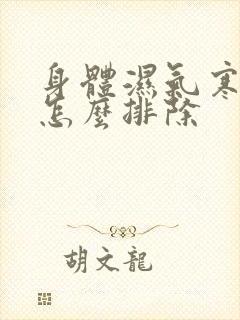 身體濕氣寒
怎麼排除
胡文龍